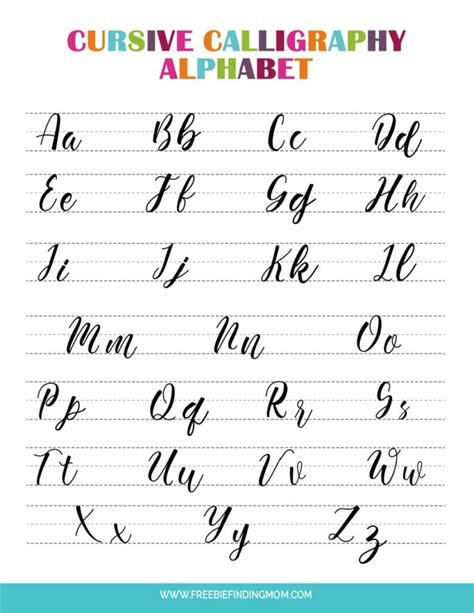 CURSIVE CALLIGRAPHY
ALPHABET
Aa Bb Cc Dd
Ee Ff Gg Hh
Ii Jj Kk Ll
Mm Nn Oo
Pp Qq Rr Ss
Tt Uu Vv Ww
Xx Yy Zz
WWW.FREEBIEFINDINGMOM.COM